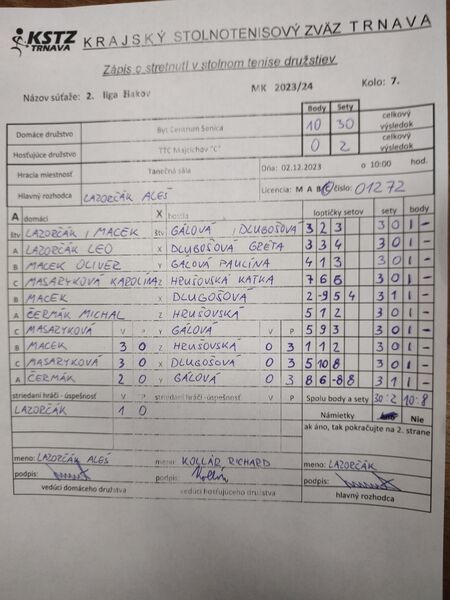 KSTZ TRNAVA KRAJSKÝ STOLNOTENISOVÝ ZVÄZ TRNAVA
Zápis o stretnutí v stolnom tenise družstiev
Názov súťaže: 2. liga žiakov MK 2023/24 Kolo: 7.
Body Sety celkový výsledok
Domáce družstvo Byt Centrum Senica 10 30
Hosťujúce družstvo TTC Majcichov "C" 0 2 celkový výsledok
Hracia miestnosť Tanečná sála Dňa: 02.12.2023 o 10:00 hod.
Hlavný rozhodca LAZORČÁK ALEŠ Licencia: M A B C číslo: 01272
A domáci X hostia loptičky setov sety body
štv LAZORČÁK / MACEK štv GÁLOVÁ / DLUGOŠOVÁ 3 2 3 3 0 1 -
A LAZORČÁK LEO X DLUGOŠOVÁ GRÉTA 3 3 4 3 0 1 -
B MACEK OLIVER Y GÁLOVÁ PAULÍNA 4 1 3 3 0 1 -
C MASARYKOVÁ KAROLÍNA Z HRUŠOVSKÁ KATKA 7 6 6 3 0 1 -
B MACEK X DLUGOŠOVÁ 2 -9 5 4 3 1 1 -
A ČERMÁK MICHAL Z HRUŠOVSKÁ 5 1 2 3 0 1 -
C MASARYKOVÁ V P Y GÁLOVÁ V P 5 9 3 3 0 1 -
B MACEK 3 0 Z HRUŠOVSKÁ 0 3 1 1 2 3 0 1 -
C MASARYKOVÁ 3 0 X DLUGOŠOVÁ 0 3 5 10 8 3 0 1 -
A ČERMÁK 2 0 Y GÁLOVÁ 0 3 8 6 -8 8 3 1 1 -
striedaní hráči - úspešnosť V P striedaní hráči - úspešnosť V P Spolu body a sety 30:2 10:8
LAZORČÁK 1 0 Námietky Nie
ak áno, tak pokračujte na 2. strane
meno: LAZORČÁK ALEŠ meno: KOLLÁR RICHARD meno: LAZORČÁK
podpis: podpis: Kollár podpis:
vedúci domáceho družstva vedúci hosťujúceho družstva hlavný rozhodca